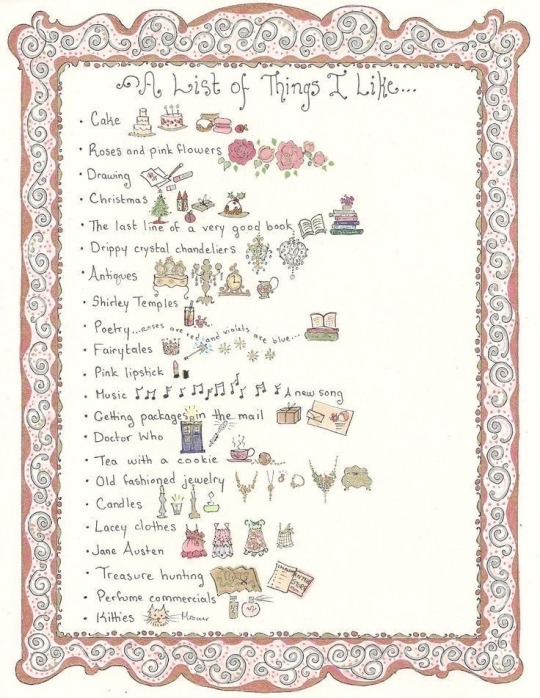 A List of Things I Like...
• Cake
• Roses and pink flowers
• Drawing
• Christmas
• The last line of a very good book
• Drippy crystal chandeliers
• Antiques
• Shirley Temples
• Poetry...roses are red and violets are blue...
• Fairytales
• Pink lipstick
• Music A new song
• Getting packages in the mail
• Doctor Who
• Tea with a cookie
• Old fashioned jewelry
• Candles
• Lacey clothes
• Jane Austen
• Treasure hunting
• Perfume commercials
• Kitties Meow